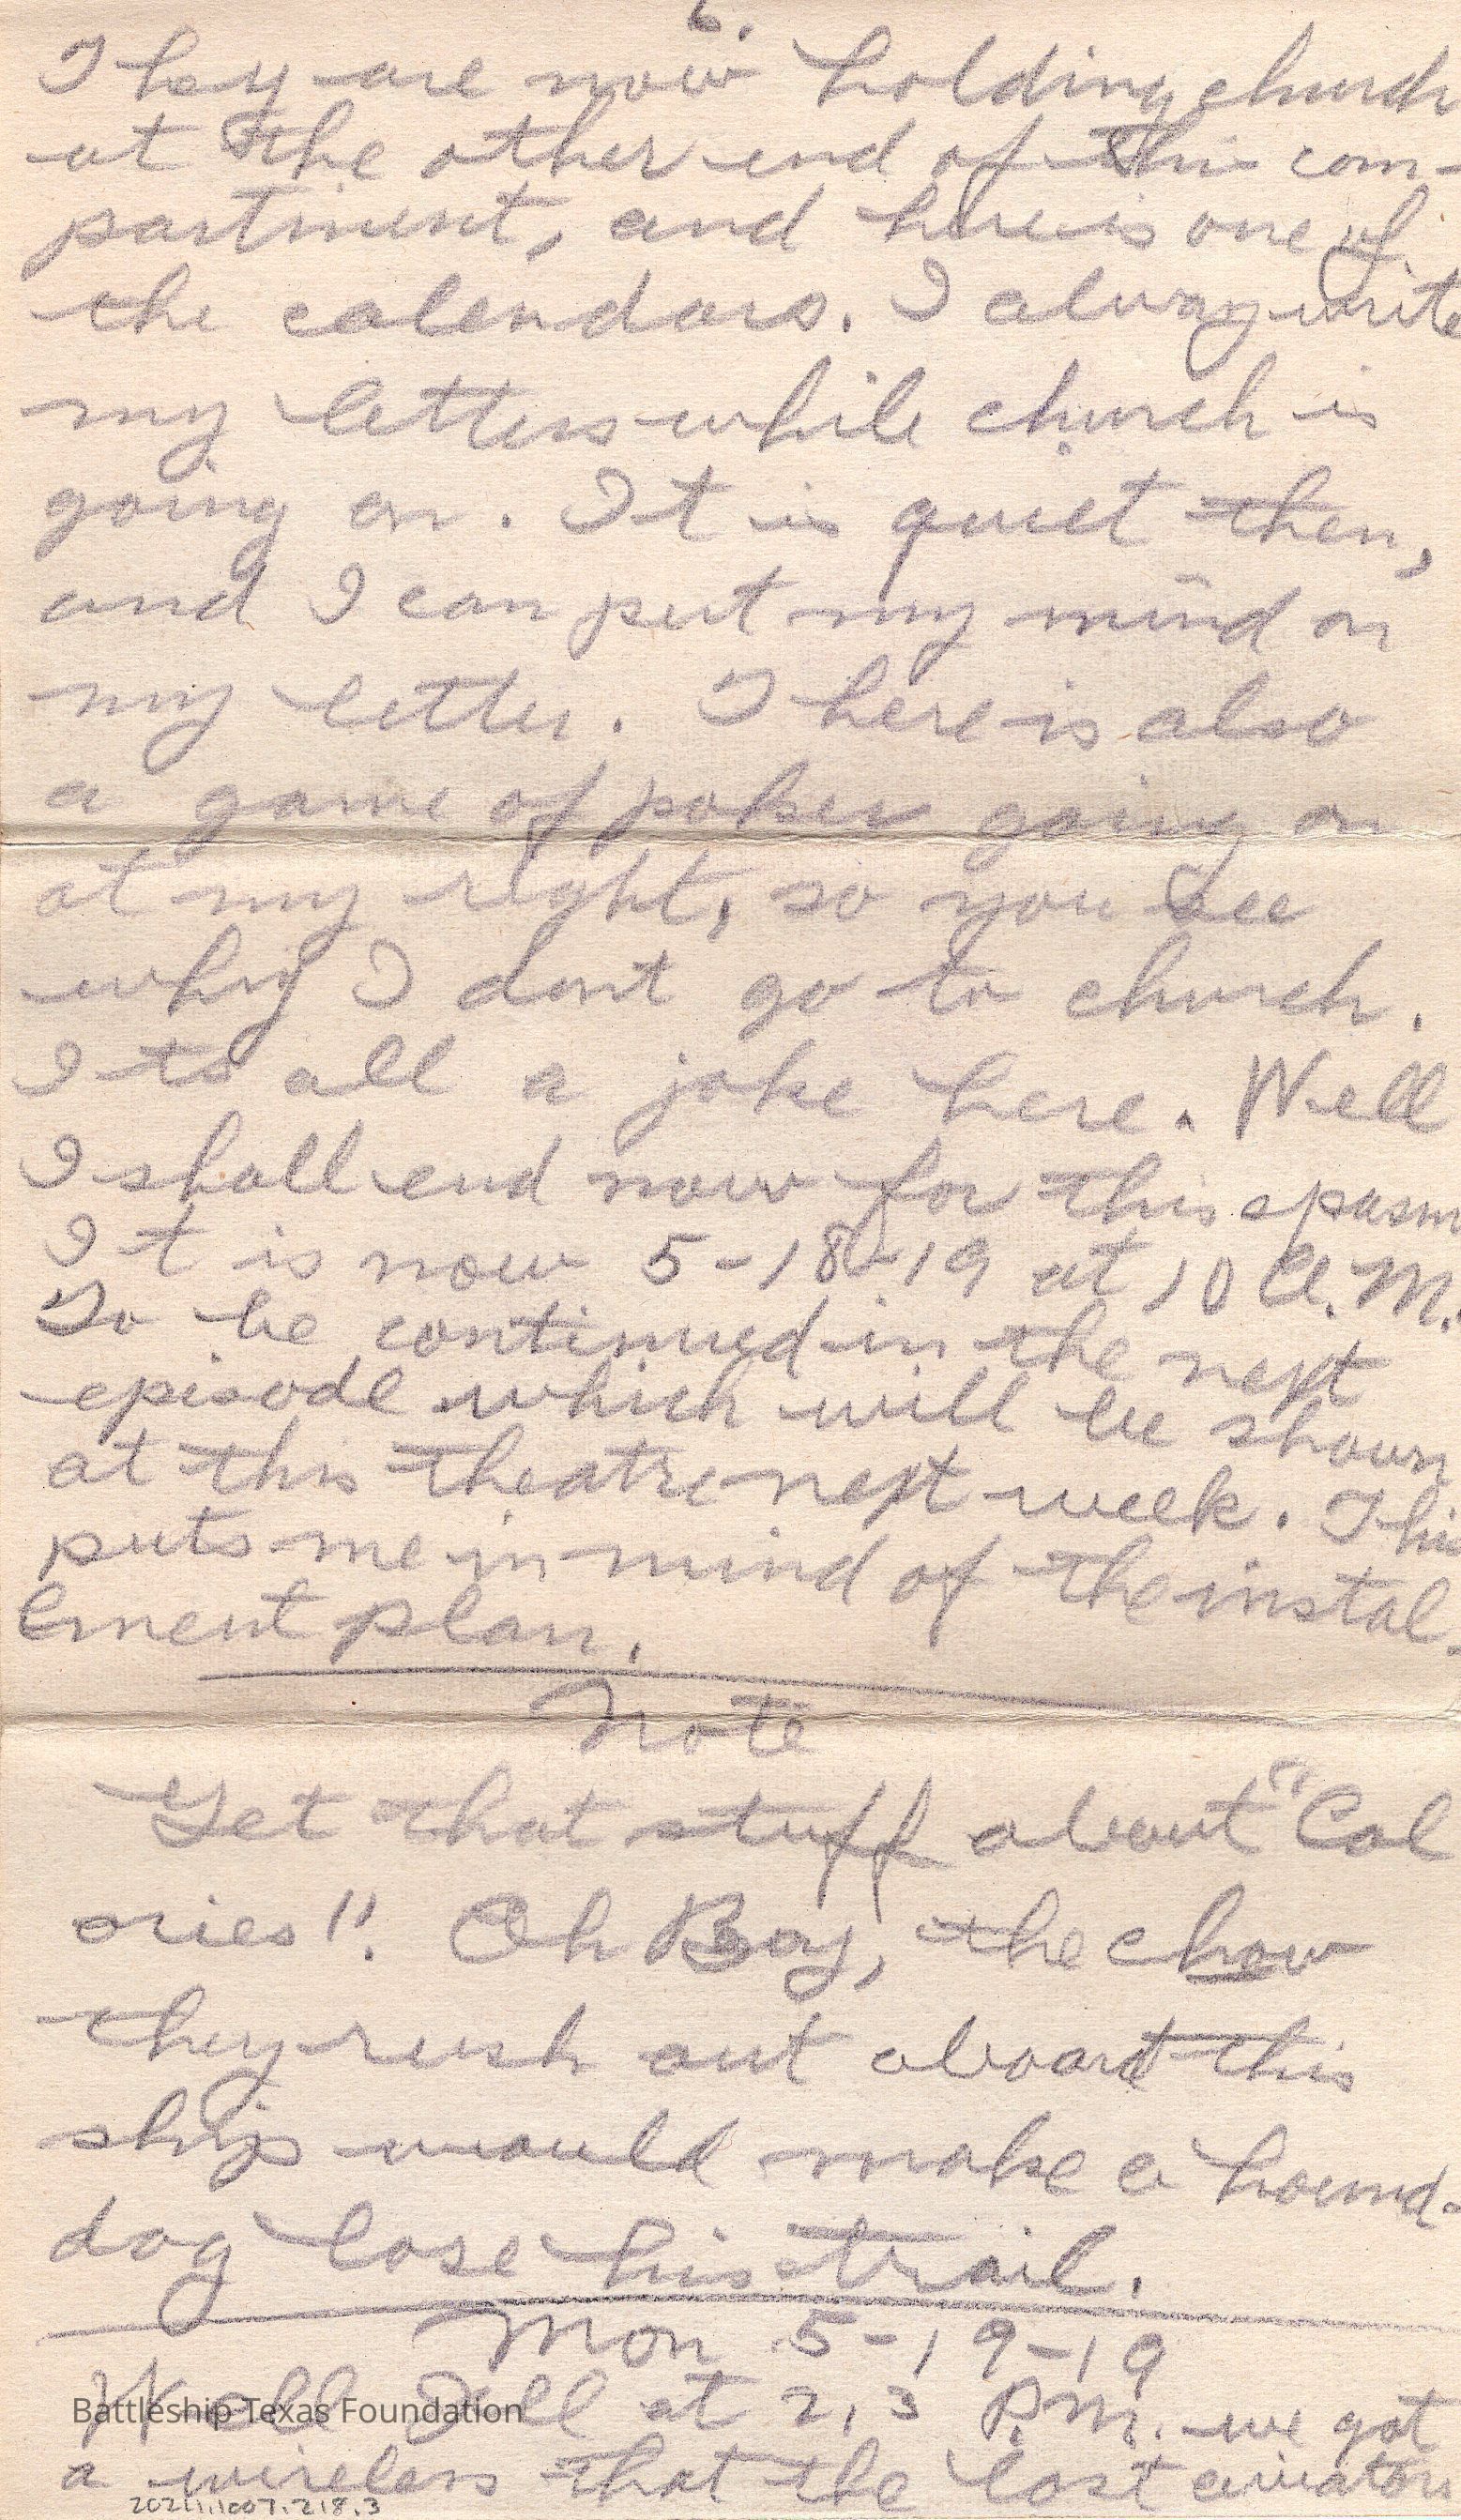 6.
They are now holding church
at the other end of this com-
partment, and here is one of
the calendars. I alway write
my letters while church is
going on. It is quiet then,
and I can put my mind on
my letter. There is also
a game of poker going on
at my right, so you see
why I dont go to church.
Its all a joke here. Well
I shall end now for this spasm
It is now 5-18-19 at 10 A.M.
To be continued in the next
episode which will be shown
at this theatre next week. This
puts me in mind of the instal-
lment plan.
Note
Get that stuff about "Cal
ories"! Oh Boy, the chow
they rush out aboard this
ship would make a hound-
dog lose his trail.
Mon 5-19-19
Well at 2,3 P.M. we got
a wireless that the lost aviators
Battleship Texas Foundation
2021.1.1007.218.3